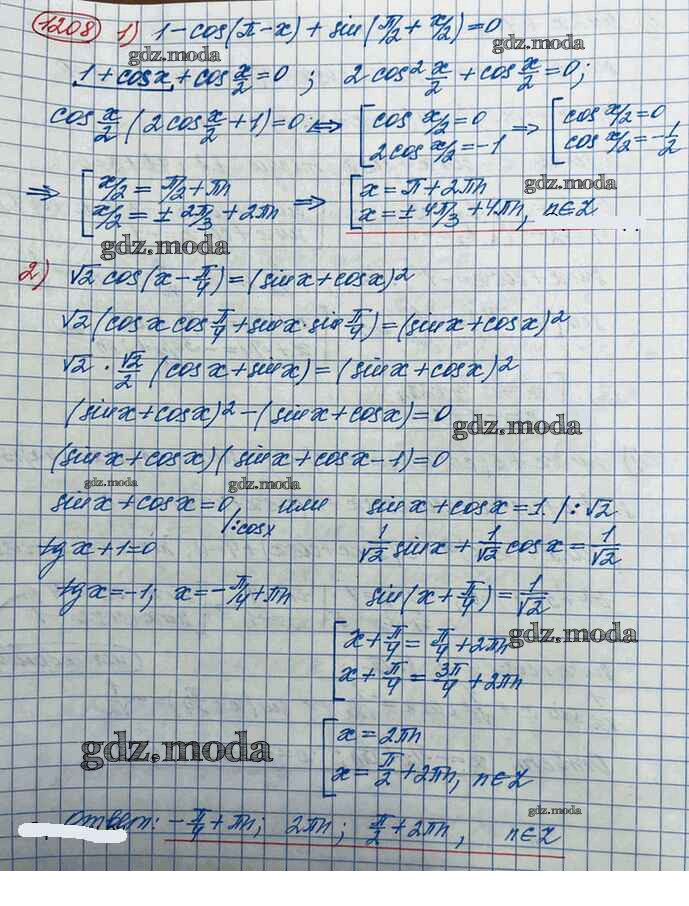 1208 1) 1-cos(π-x)+sin(π/2+x/2)=0
gdz.moda
1+cosx+cos x/2=0 ; 2cos² x/2+cos x/2=0;
gdz.moda
cos x/2 (2cos x/2+1)=0 ⇔ [cos x/2=0 ⇒ [cos x/2=0
2cos x/2=-1 cos x/2=-1/2
⇒ [x/2=π/2+πn ⇒ [x=π+2πn
x/2=±2π/3+2πn x=±4π/3+4πn, n∈Z
gdz.moda
2) √2cos(x-π/4)=(sinx+cosx)²
√2(cosx cos π/4+sinx·sin π/4)=(sinx+cosx)²
√2·√2/2(cosx+sinx)=(sinx+cosx)²
(sinx+cosx)²-(sinx+cosx)=0
gdz.moda
(sinx+cosx)(sinx+cosx-1)=0
gdz.moda gdz.moda
sinx+cosx=0 |:cosx или sinx+cosx=1 |:√2
gdz.moda
tgx+1=0 1/√2 sinx+1/√2 cosx=1/√2
tgx=-1; x=-π/4+πn sin(x+π/4)=1/√2
gdz.moda
[x+π/4=π/4+2πn
x+π/4=3π/4+2πn
gdz.moda
[x=2πn
x=π/2+2πn, n∈Z
gdz.moda
Ответ: -π/4+πn; 2πn; π/2+2πn, n∈Z